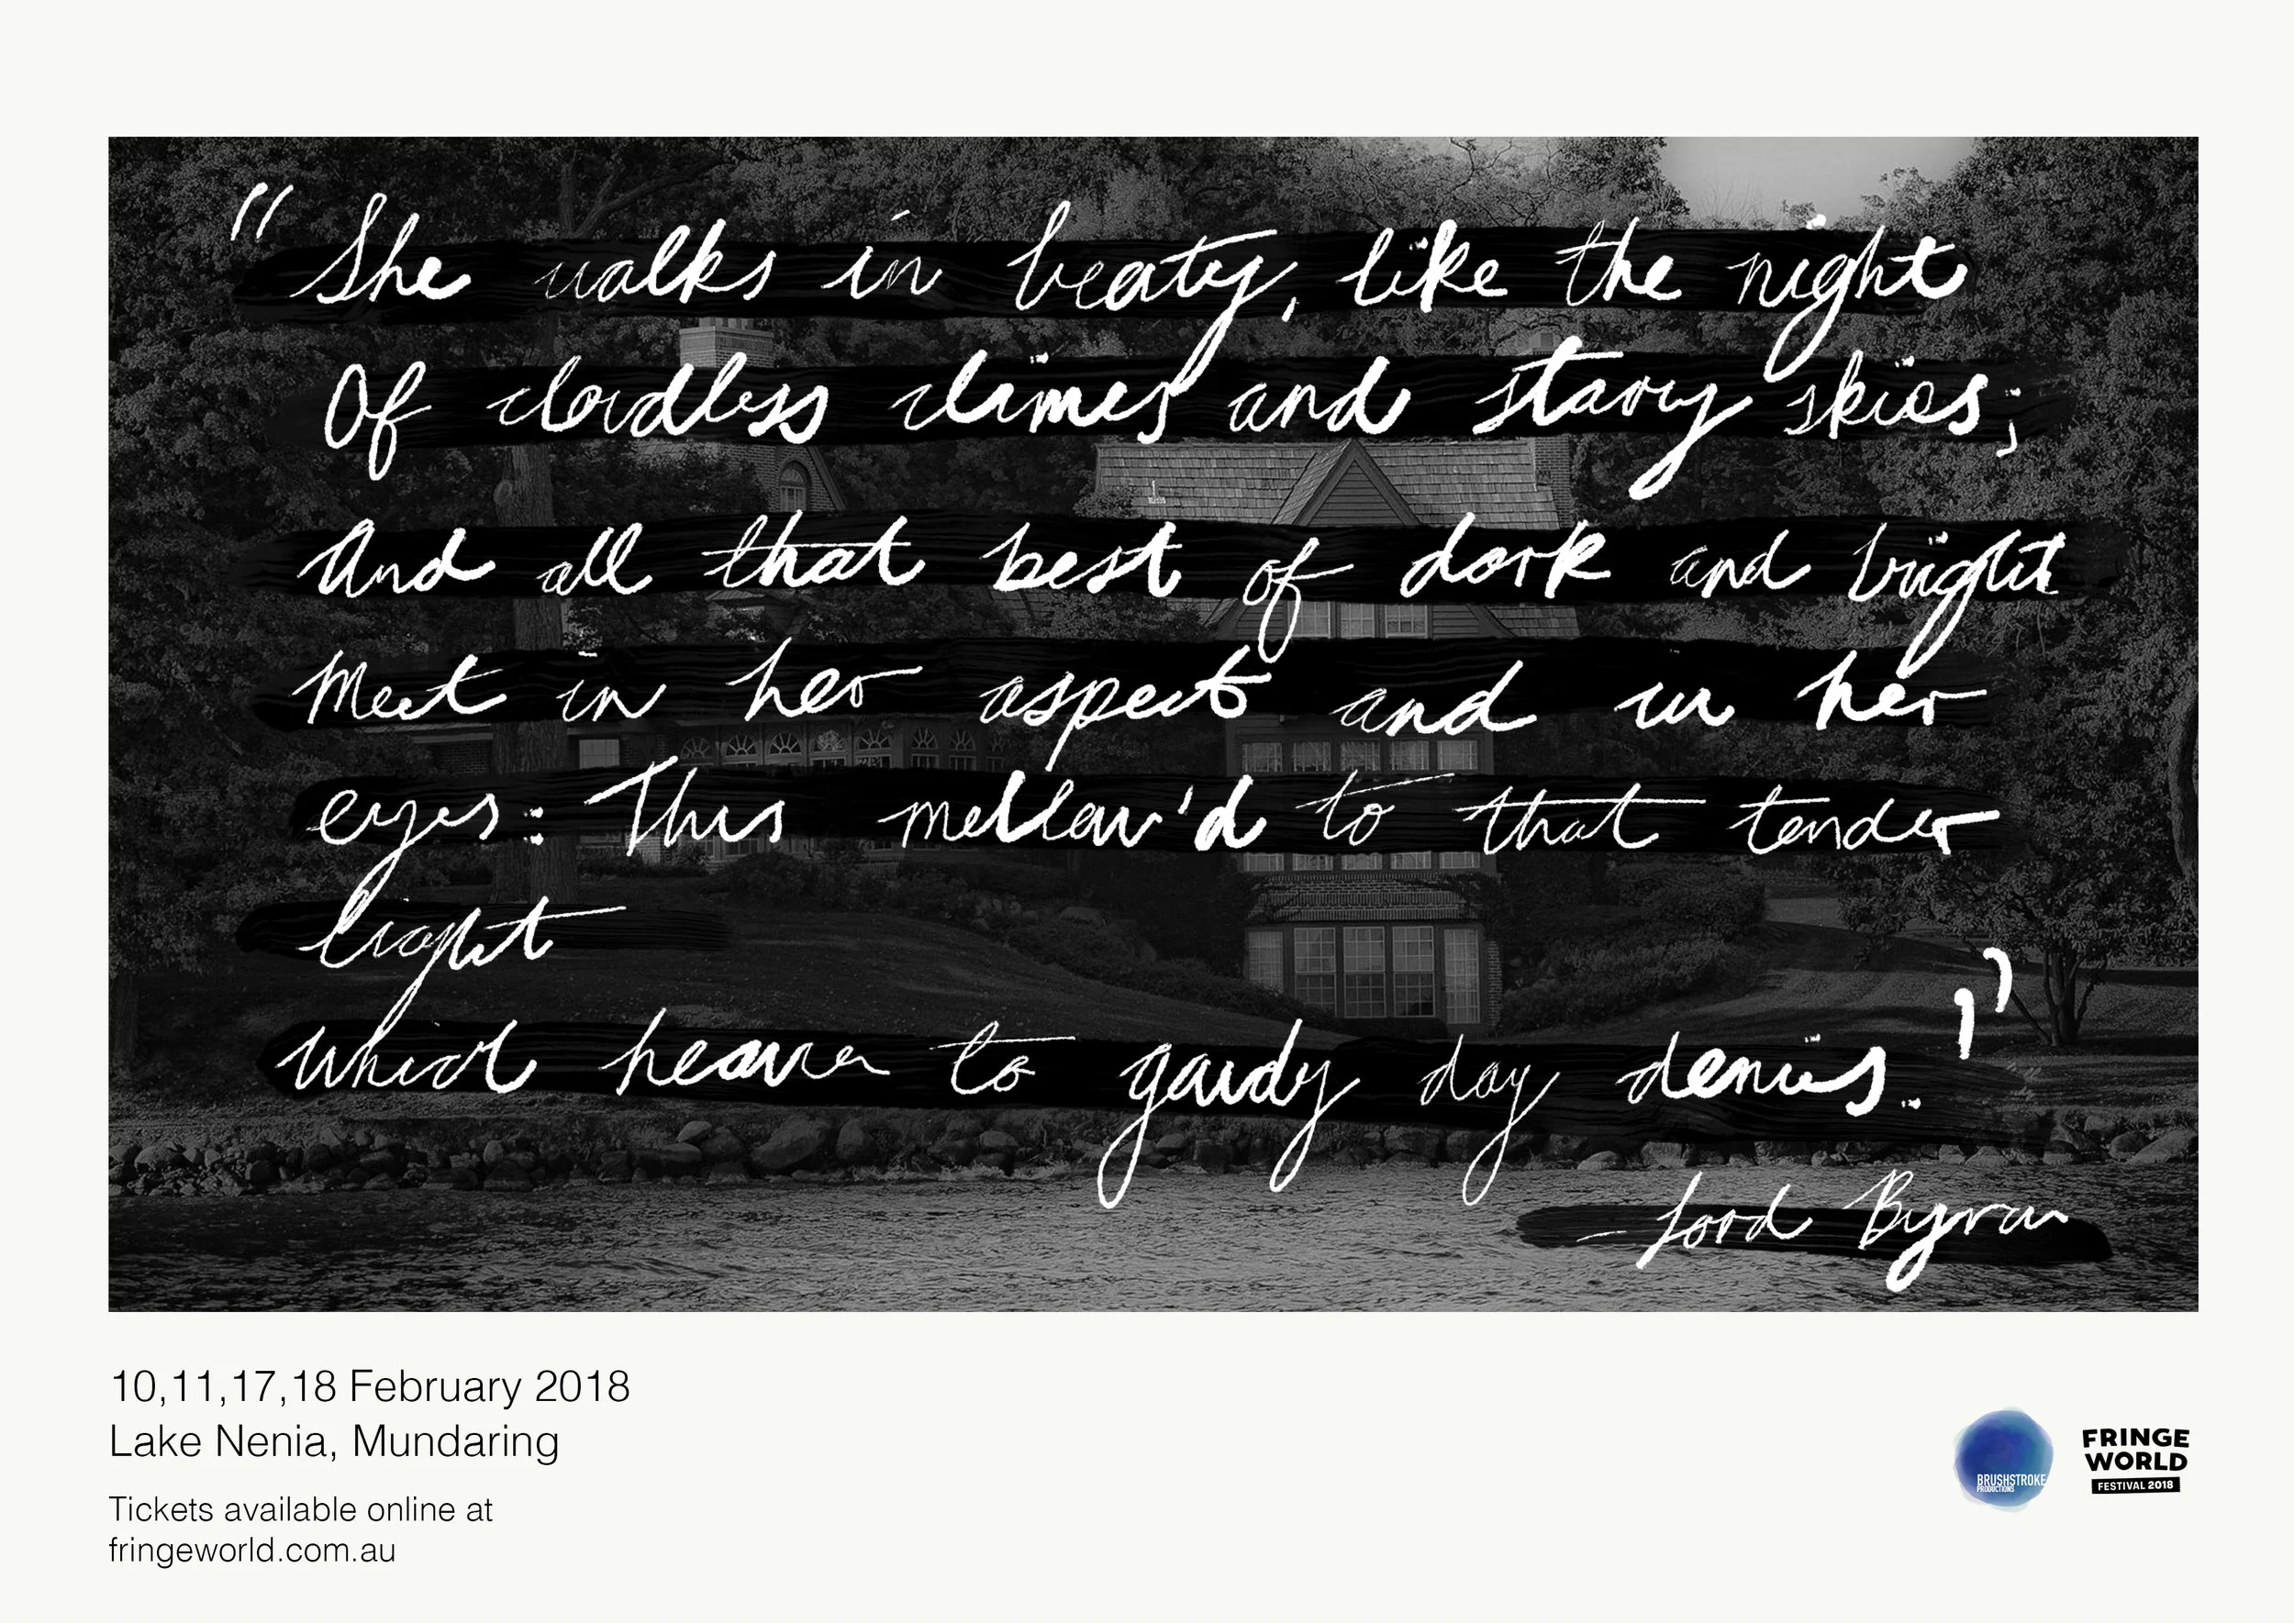 "She walks in beaty, like the night
Of cloudless climes and stary skies;
And all that best of dark and bright
Meet in her aspect and in her
eyes: This mellow'd to that tender
light
which heaven to gaudy day denies."
- Lord Byron
10,11,17,18 February 2018
Lake Nenia, Mundaring
Tickets available online at
fringeworld.com.au
BRUSHSTROKE
PRODUCTIONS
FRINGE
WORLD
FESTIVAL 2018